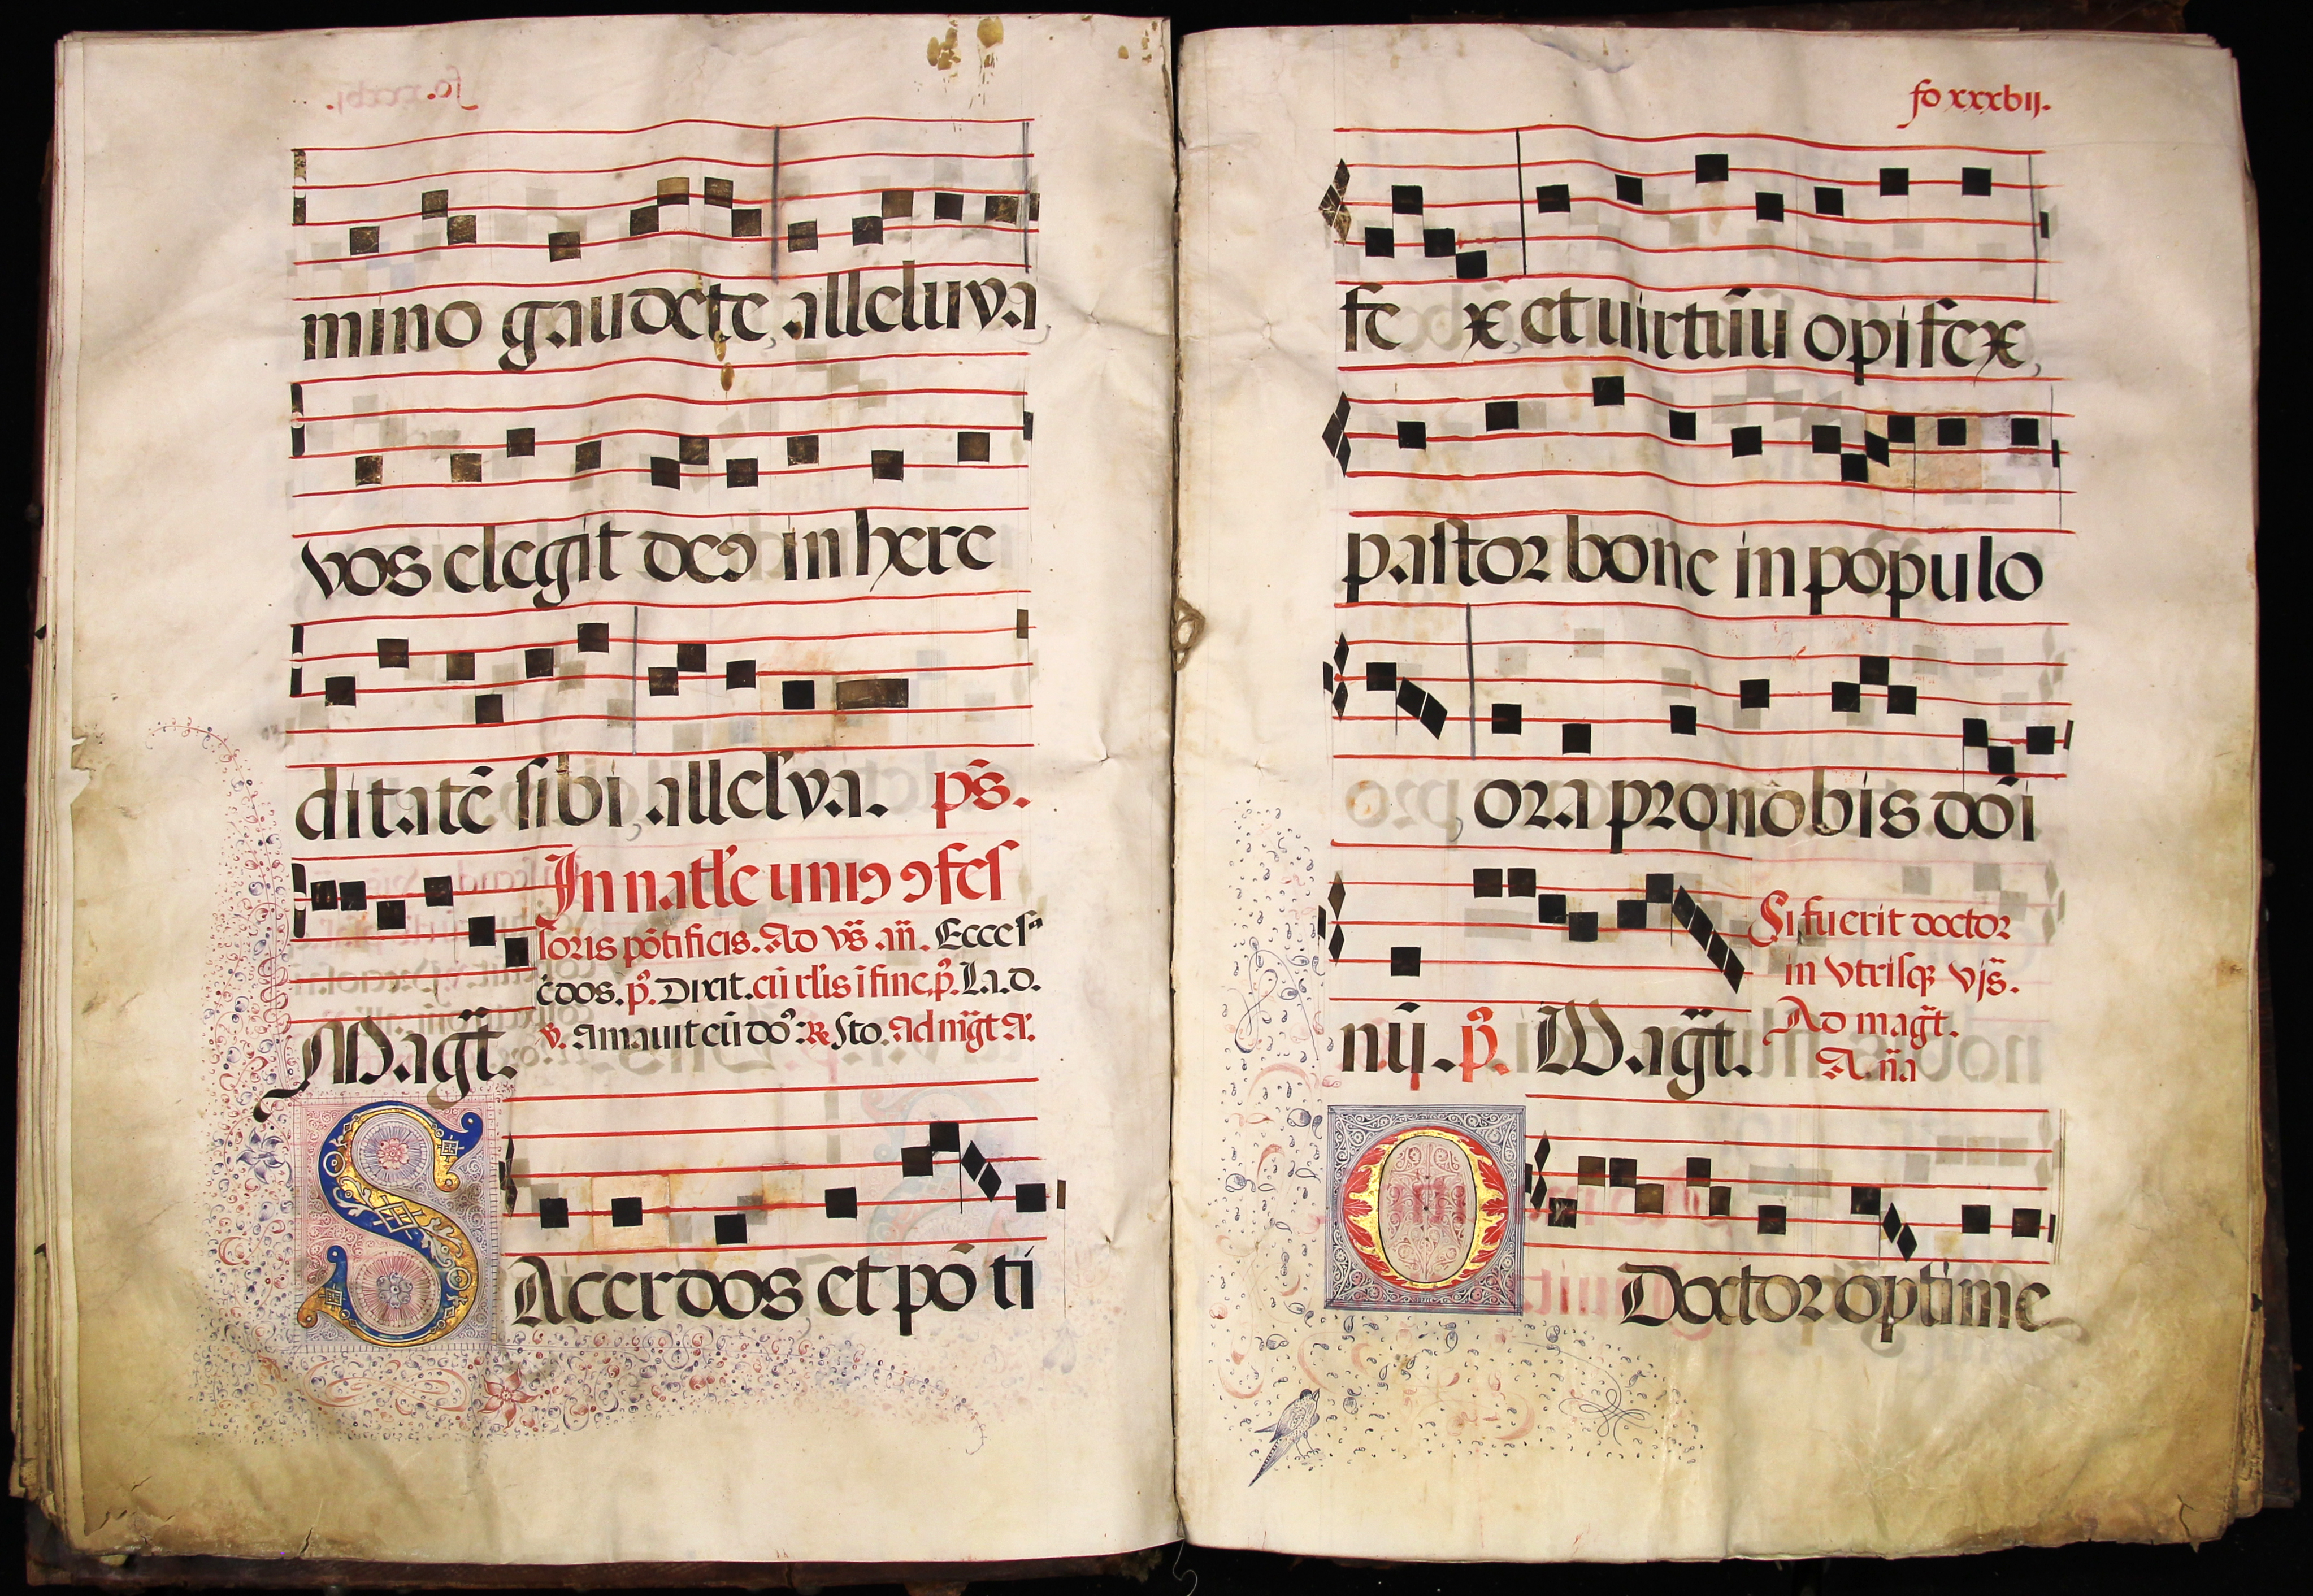 mino gaudete, alleluya,
vos elegit deꝯ in here
ditatē sibi, allelˀya. p̄s.
In natłe uniꝯ ꝯfeſ
Magt̄.
soris pōtificis. Ad vs̄ . an̄. Ecce sᵃ
cdos. p̊. Dixit. cū rłis ī fine. p̊. La. d.
v. amauit cū doꝰ: R sto. Ad mg̅t a:
SAcerdos et pō ti
fo xxxbij.
fe x, et uirtūu opifex,
pastor bone in populo
, ora pro nobis dōi
nij. p̊. Magt̄.
Si fuerit doctor
in vtrisqꝫ vjs̄.
Ad magt̄.
An̄a
O Doctor optime